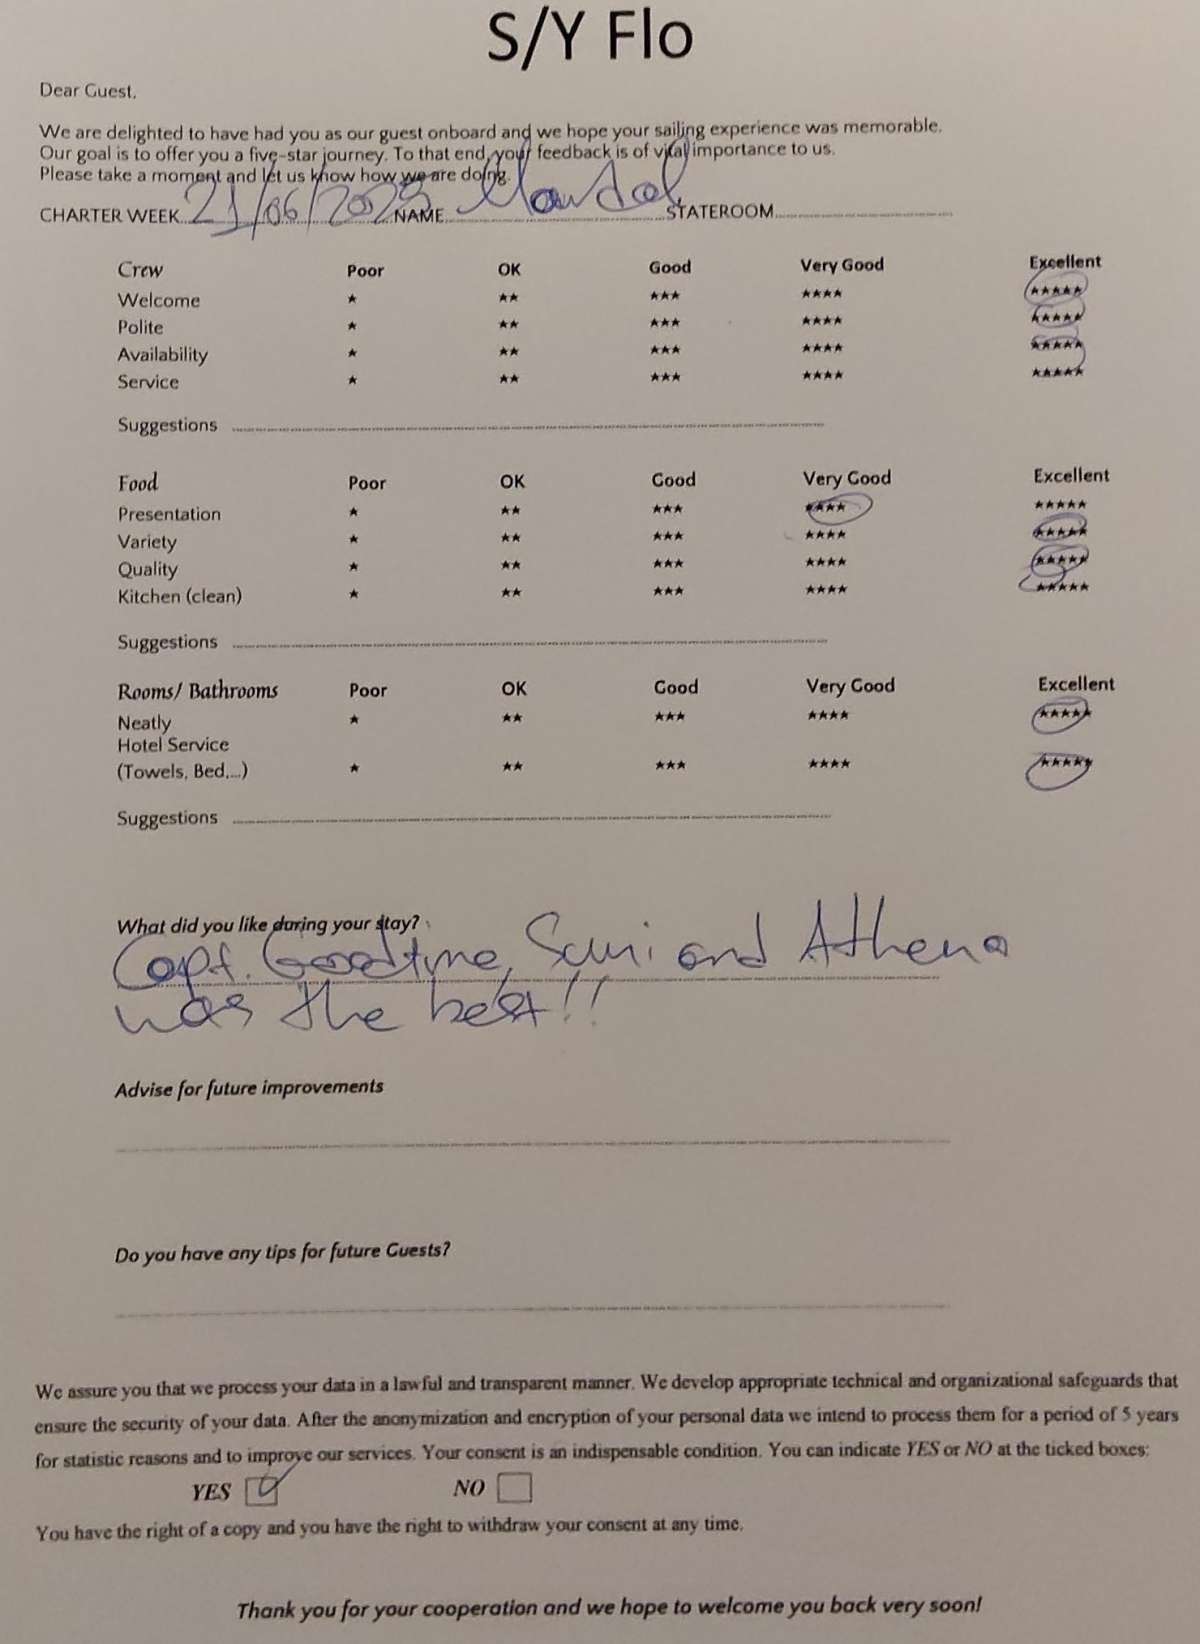 S/Y Flo
Dear Guest,
We are delighted to have had you as our guest onboard and we hope your sailing experience was memorable.
Our goal is to offer you a five-star journey. To that end, your feedback is of vital importance to us.
Please take a moment and let us know how we are doing.
CHARTER WEEK 21/06/2023 NAME STATEROOM
Crew Poor OK Good Very Good Excellent
Welcome ★ ★★ ★★★ ★★★★ ★★★★★
Polite ★ ★★ ★★★ ★★★★ ★★★★★
Availability ★ ★★ ★★★ ★★★★ ★★★★★
Service ★ ★★ ★★★ ★★★★ ★★★★★
Suggestions
Food Poor OK Good Very Good Excellent
Presentation ★ ★★ ★★★ ★★★★ ★★★★★
Variety ★ ★★ ★★★ ★★★★ ★★★★★
Quality ★ ★★ ★★★ ★★★★ ★★★★★
Kitchen (clean) ★ ★★ ★★★ ★★★★ ★★★★★
Suggestions
Rooms/ Bathrooms Poor OK Good Very Good Excellent
Neatly ★ ★★ ★★★ ★★★★ ★★★★★
Hotel Service
(Towels, Bed,...) ★ ★★ ★★★ ★★★★ ★★★★★
Suggestions
What did you like during your stay?
Capt. Goodtime, and Athena
was the best!!
Advise for future improvements
Do you have any tips for future Guests?
We assure you that we process your data in a lawful and transparent manner. We develop appropriate technical and organizational safeguards that
ensure the security of your data. After the anonymization and encryption of your personal data we intend to process them for a period of 5 years
for statistic reasons and to improve our services. Your consent is an indispensable condition. You can indicate YES or NO at the ticked boxes:
YES NO
You have the right of a copy and you have the right to withdraw your consent at any time.
Thank you for your cooperation and we hope to welcome you back very soon!